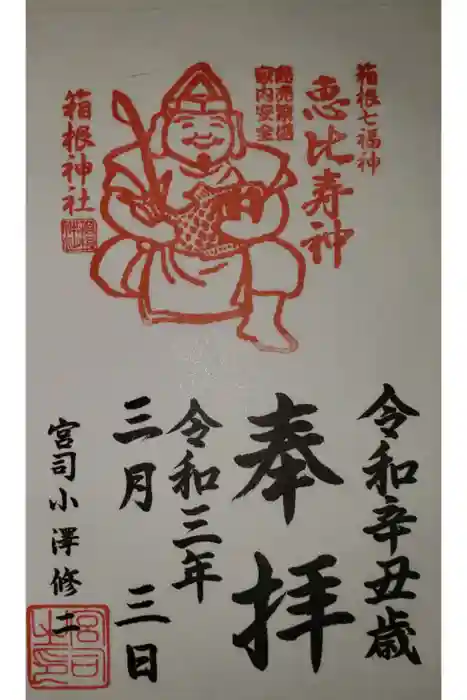 箱根七福神
恵比寿神
商売繁盛
家内安全
箱根神社
令和辛丑歳
奉拝
令和三年
三月三日
宮司小澤修二
宮司之印